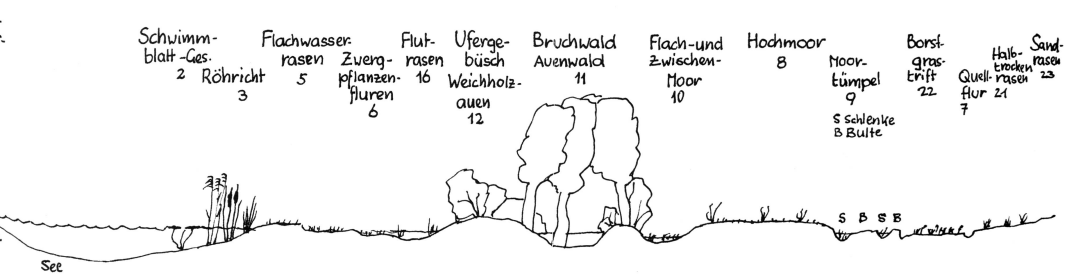 Schwimm-
blatt-Ges.
2
Röhricht
3
Flachwasser-
rasen
5
Zwerg-
pflanzen-
fluren
6
Flut-
rasen
16
Uferge-
büsch
Weichholz-
auen
12
Bruchwald
Auenwald
11
Flach-und
Zwischen-
Moor
10
Hochmoor
8
Moor-
tümpel
9
S Schlenke
B Bulte
Borst-
gras-
trift
22
Quell-
flur
7
Halb-
trocken-
rasen
21
Sand-
rasen
23
S B S B
See